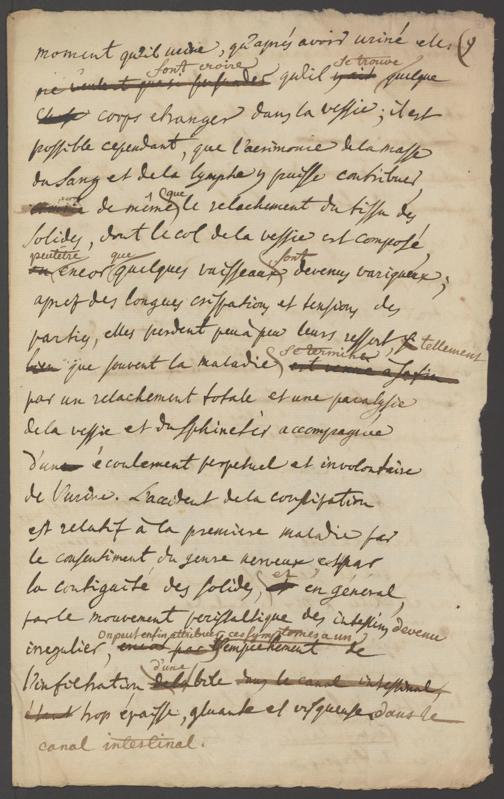 moment qu'il urine, qu'aprés avoir uriné etc.
font croire se trouve
qu'il y ait quelque
corps etranger dans la vessie; il est
possible cependant, que l'acrimonie de la masse
du Sang et de la lymphe y puisse contribuer,
de même que le relachement du tissu des
Solides, dont le col de la vessie est composé,
peutétre que sont
ou encor quelques vaisseaux devenus variqueux;
apres des longues crispations et tensions des
parties, elles perdent peu à peu leurs ressort, tellement
se termine
bien que souvent la maladie est venue a sa fin
par un relachement totale et une paralysie
de la vessie et du Sphinctér accompagnée
d'un écoulement perpetuel et involontaire
de l'urine. L'accident de la constipation
est relatif à la premiere maladie par
le consentiment du genre nerveux et par
la contiguité des solides, et en général
par le mouvement peristaltique des intestins devenu
On peut enfin attribuer ces symptomes a un
irregulier, encor par l'empechement de
d'une
l'infiltration de la bile dans le canal intestinal,
étant trop épaisse, gluante et visqueuse dans le
canal intestinal.